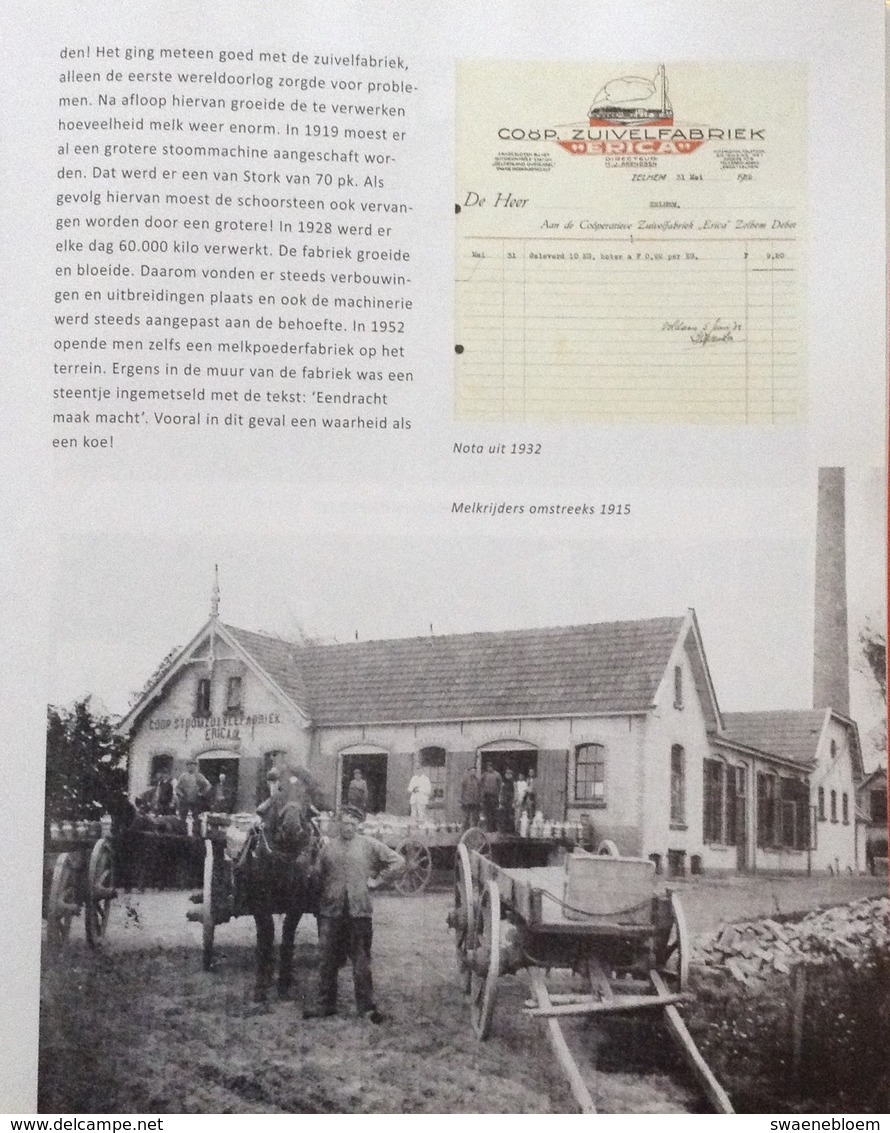 den! Het ging meteen goed met de zuivelfabriek,
alleen de eerste wereldoorlog zorgde voor proble-
men. Na afloop hiervan groeide de te verwerken
hoeveelheid melk weer enorm. In 1919 moest er
al een grotere stoommachine aangeschaft wor-
den. Dat werd er een van Stork van 70 pk. Als
gevolg hiervan moest de schoorsteen ook vervan-
gen worden door een grotere! In 1928 werd er
elke dag 60.000 kilo verwerkt. De fabriek groeide
en bloeide. Daarom vonden er steeds verbouwin-
gen en uitbreidingen plaats en ook de machinerie
werd steeds aangepast aan de behoefte. In 1952
opende men zelfs een melkpoederfabriek op het
terrein. Ergens in de muur van de fabriek was een
steentje ingemetseld met de tekst: ‘Eendracht
maak macht’. Vooral in dit geval een waarheid als
een koe!
COÖP. ZUIVELFABRIEK
"ERICA"
DIRECTEUR:
H.J. ARENDSEN
ZELHEM 31 Mei 1932
De Heer
Aan de Coöperatieve Zuivelfabriek „Erica" Zelhem Debet
Mei 31 Geleverd 10 KG. boter a F 0.92 per KG. F 9,20
Nota uit 1932
Melkrijders omstreeks 1915
COOP. STOOMZUIVELFABRIEK
ERICA
www.delcampe.net
swaenebloem